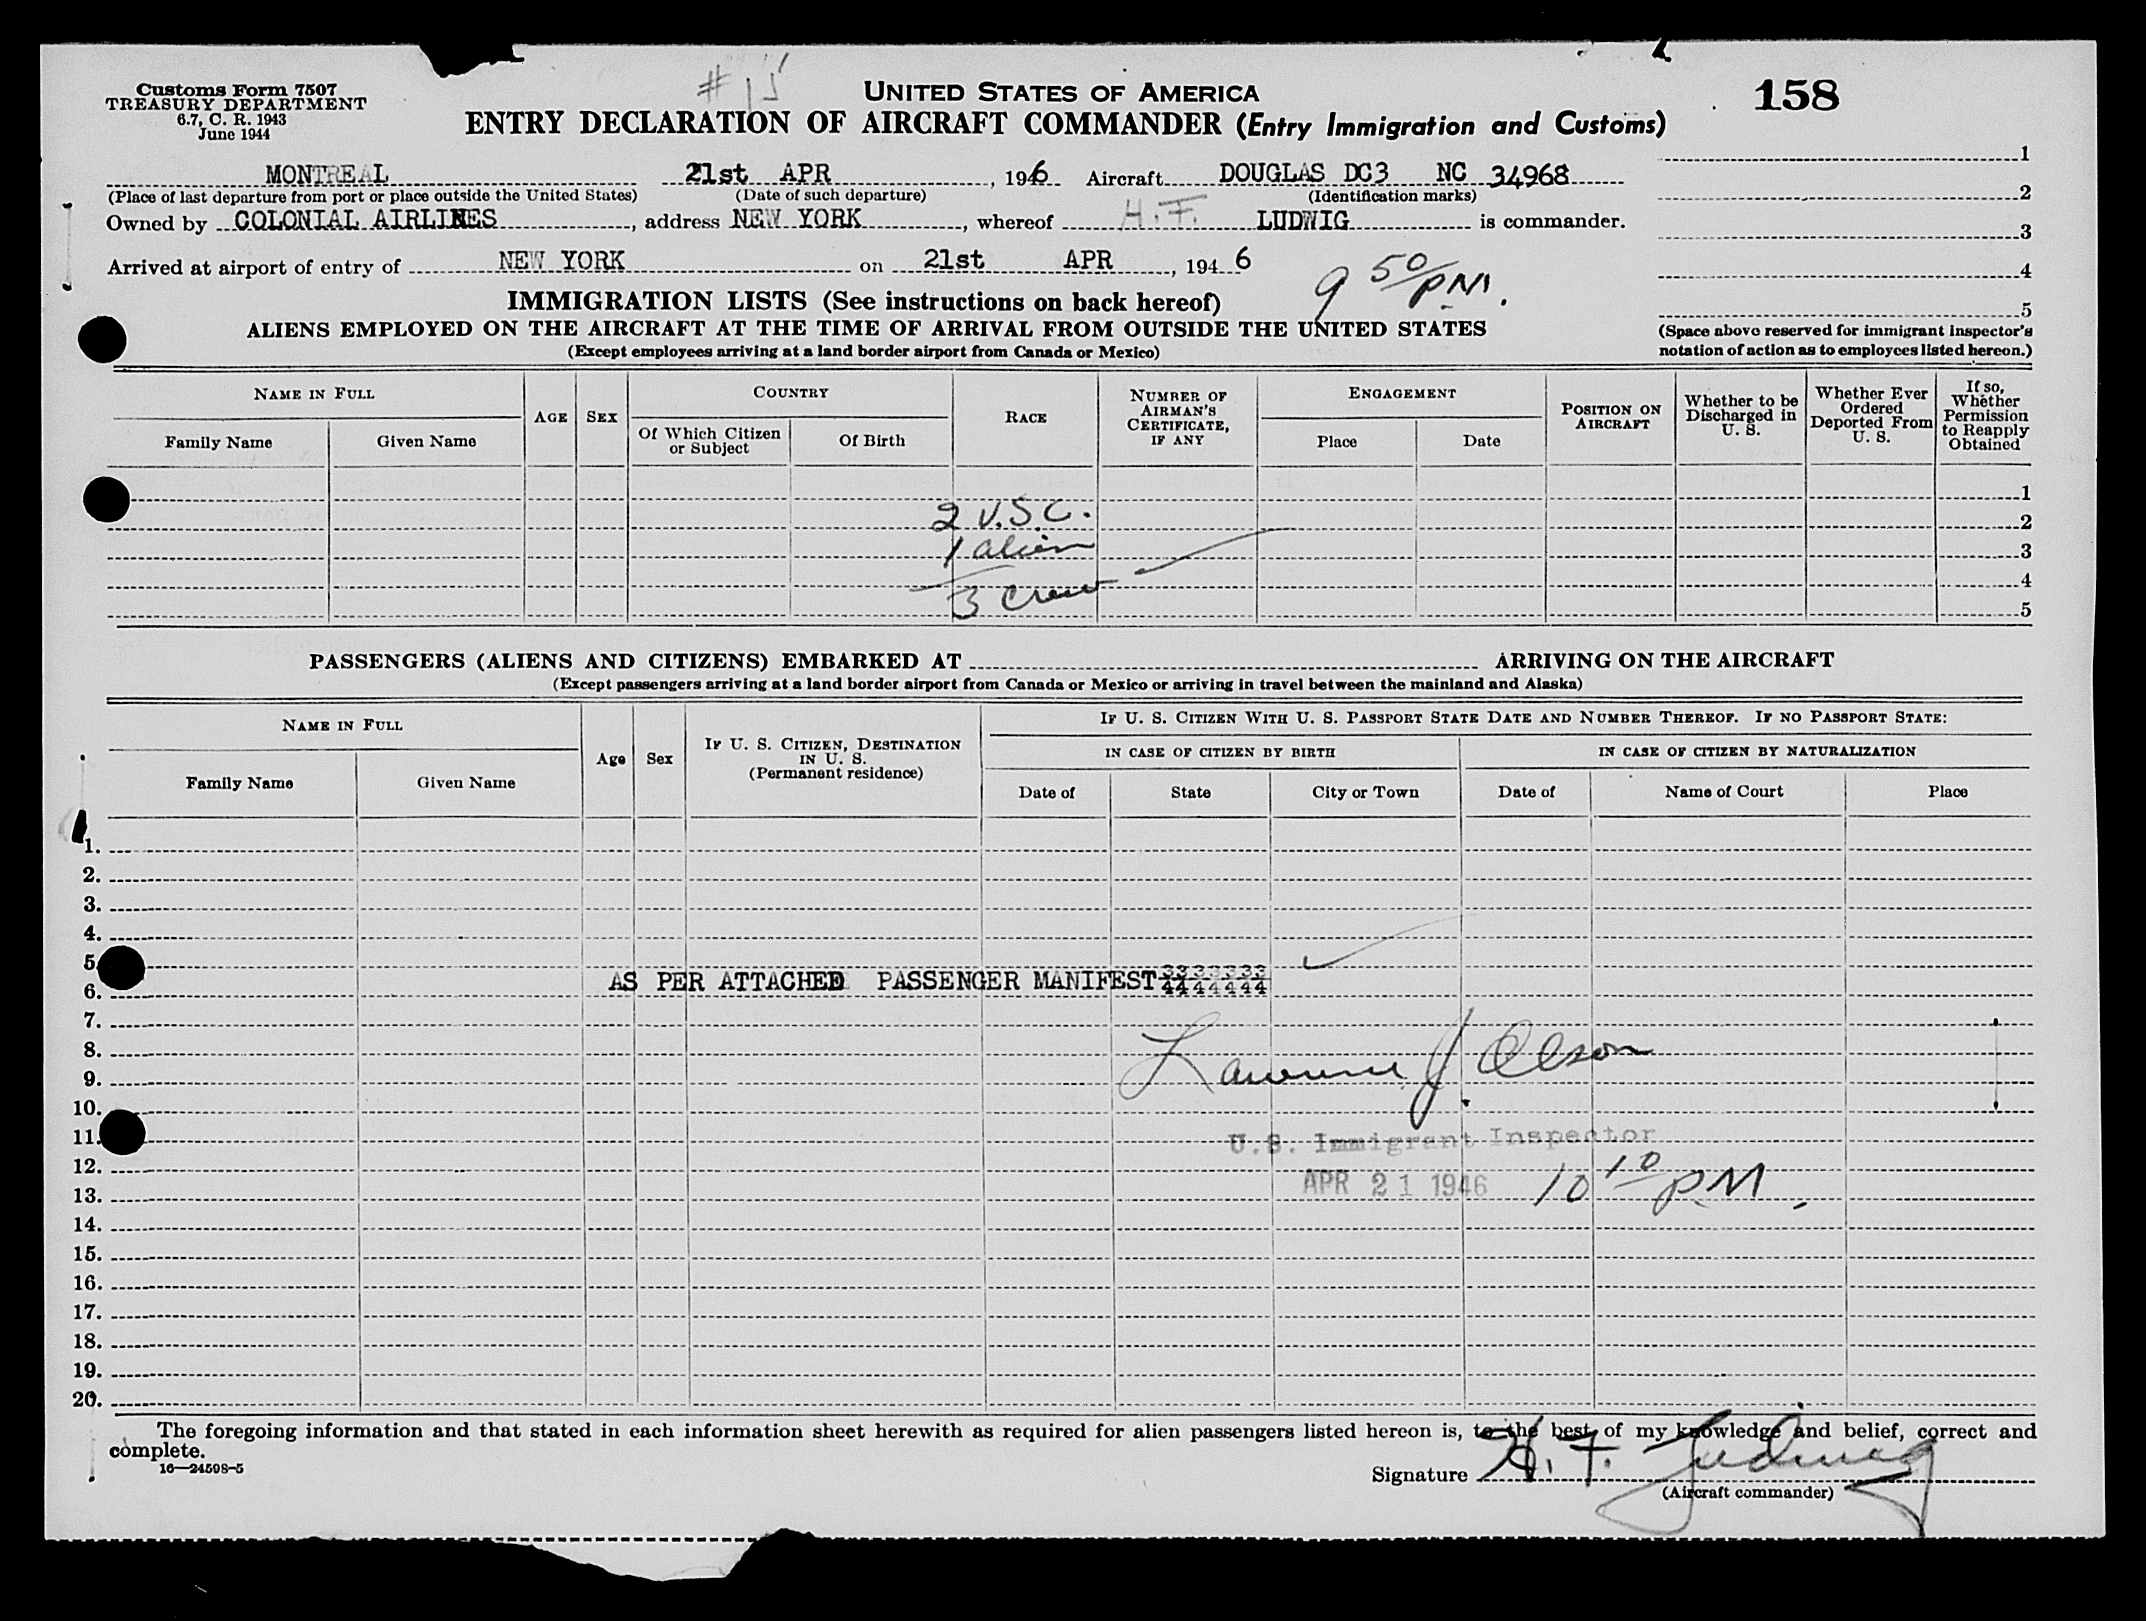 Customs Form 7507
TREASURY DEPARTMENT
6.7, C. R. 1943
June 1944
# 15
UNITED STATES OF AMERICA
158
ENTRY DECLARATION OF AIRCRAFT COMMANDER (Entry Immigration and Customs)
MONTREAL 21st APR, 1946 Aircraft DOUGLAS DC3 NC 34968
(Place of last departure from port or place outside the United States) (Date of such departure) (Identification marks)
Owned by COLONIAL AIRLINES, address NEW YORK, whereof H.F. LUDWIG is commander.
Arrived at airport of entry of NEW YORK on 21st APR, 1946
9 50/PM.
1
2
3
4
5
(Space above reserved for immigrant inspector's
notation of action as to employees listed hereon.)
IMMIGRATION LISTS (See instructions on back hereof)
ALIENS EMPLOYED ON THE AIRCRAFT AT THE TIME OF ARRIVAL FROM OUTSIDE THE UNITED STATES
(Except employees arriving at a land border airport from Canada or Mexico)
NAME IN FULL
Family Name Given Name
AGE SEX
COUNTRY
Of Which Citizen or Subject Of Birth
RACE
NUMBER OF AIRMAN'S CERTIFICATE, IF ANY
ENGAGEMENT
Place Date
POSITION ON AIRCRAFT
Whether to be Discharged in U. S.
Whether Ever Ordered Deported From U. S.
If so, Whether Permission to Reapply Obtained
1
2 U.S.C. 2
1 alien 3
4
3 Crew 5
PASSENGERS (ALIENS AND CITIZENS) EMBARKED AT ARRIVING ON THE AIRCRAFT
(Except passengers arriving at a land border airport from Canada or Mexico or arriving in travel between the mainland and Alaska)
NAME IN FULL
Family Name Given Name
Age Sex
IF U. S. CITIZEN, DESTINATION IN U. S.
(Permanent residence)
IF U. S. CITIZEN WITH U. S. PASSPORT STATE DATE AND NUMBER THEREOF. IF NO PASSPORT STATE:
IN CASE OF CITIZEN BY BIRTH IN CASE OF CITIZEN BY NATURALIZATION
Date of State City or Town Date of Name of Court Place
1.
2.
3.
4.
5.
AS PER ATTACHED PASSENGER MANIFEST
6.
7.
8. Lawrence J. Olson
9.
10.
11. U.S. Immigrant Inspector
12.
13. APR 21 1946 10 10/PM.
14.
15.
16.
17.
18.
19.
20.
The foregoing information and that stated in each information sheet herewith as required for alien passengers listed hereon is, to the best of my knowledge and belief, correct and
complete.
16—24598-5
Signature H. F. Ludwig
(Aircraft commander)